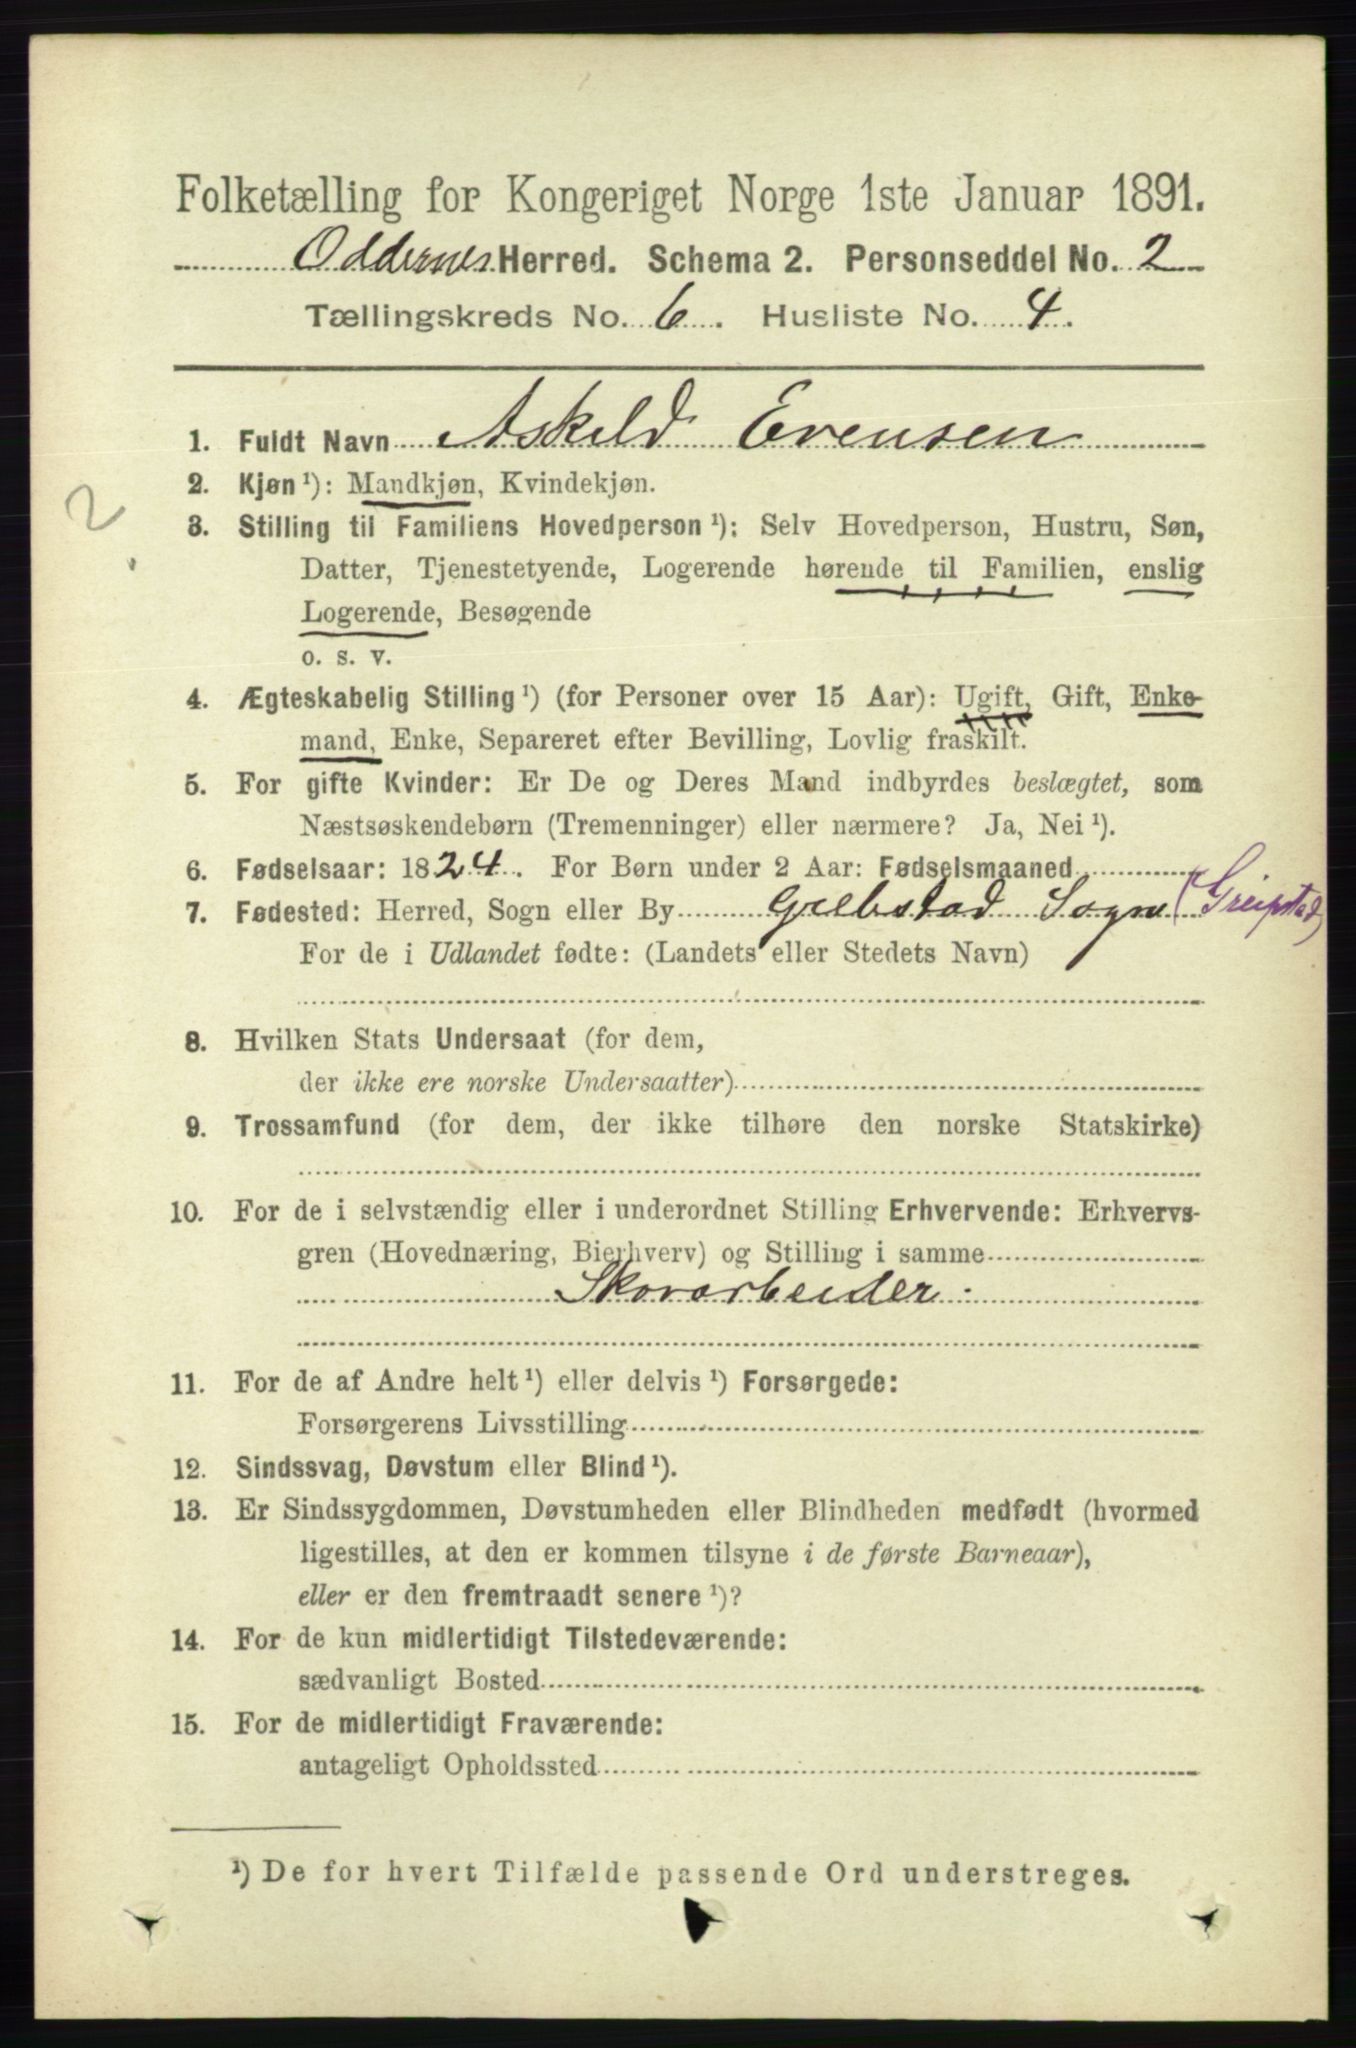 Folketælling for Kongeriget Norge 1ste Januar 1891.
Oddernes Herred. Schema 2. Personseddel No. 2
Tællingskreds No. 6. Husliste No. 4.
1. Fuldt Navn Askeld Evensen
2. Kjøn ¹): Mandkjøn, Kvindekjøn.
2
3. Stilling til Familiens Hovedperson ¹): Selv Hovedperson, Hustru, Søn,
Datter, Tjenestetyende, Logerende hørende til Familien, enslig
Logerende, Besøgende
o. s. v.
4. Ægteskabelig Stilling ¹) (for Personer over 15 Aar): Ugift, Gift, Enke-
mand, Enke, Separeret efter Bevilling, Lovlig fraskilt.
5. For gifte Kvinder: Er De og Deres Mand indbyrdes beslægtet, som
Næstsøskendebørn (Tremenninger) eller nærmere? Ja, Nei ¹).
6. Fødselsaar: 1824. For Børn under 2 Aar: Fødselsmaaned
7. Fødested: Herred, Sogn eller By Grebstad Sogn (Greipstad)
For de i Udlandet fødte: (Landets eller Stedets Navn)
8. Hvilken Stats Undersaat (for dem,
der ikke ere norske Undersaatter)
9. Trossamfund (for dem, der ikke tilhøre den norske Statskirke)
10. For de i selvstændig eller i underordnet Stilling Erhvervende: Erhvervs-
gren (Hovednæring, Bierhverv) og Stilling i samme
Skovarbeider.
11. For de af Andre helt ¹) eller delvis ¹) Forsørgede:
Forsørgerens Livsstilling
12. Sindssvag, Døvstum eller Blind ¹).
13. Er Sindssygdommen, Døvstumheden eller Blindheden medfødt (hvormed
ligestilles, at den er kommen tilsyne i de første Barneaar),
eller er den fremtraadt senere ¹)?
14. For de kun midlertidigt Tilstedeværende:
sædvanligt Bosted
15. For de midlertidigt Fraværende:
antageligt Opholdssted
¹) De for hvert Tilfælde passende Ord understreges.